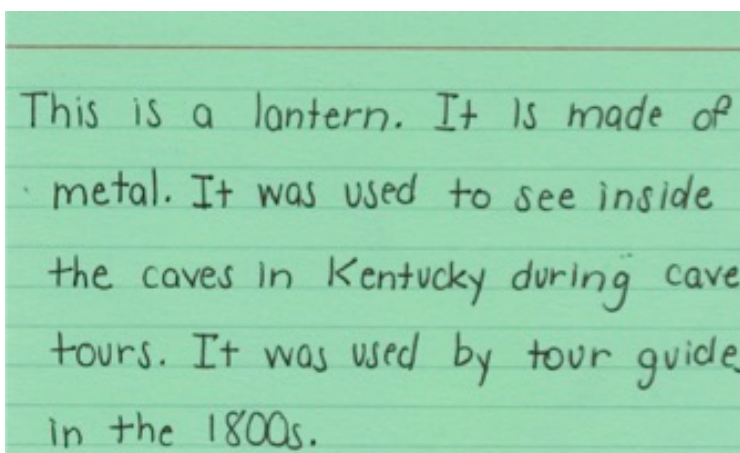 This is a lantern. It is made of
metal. It was used to see inside
the caves in Kentucky during cave
tours. It was used by tour guide
in the 1800s.